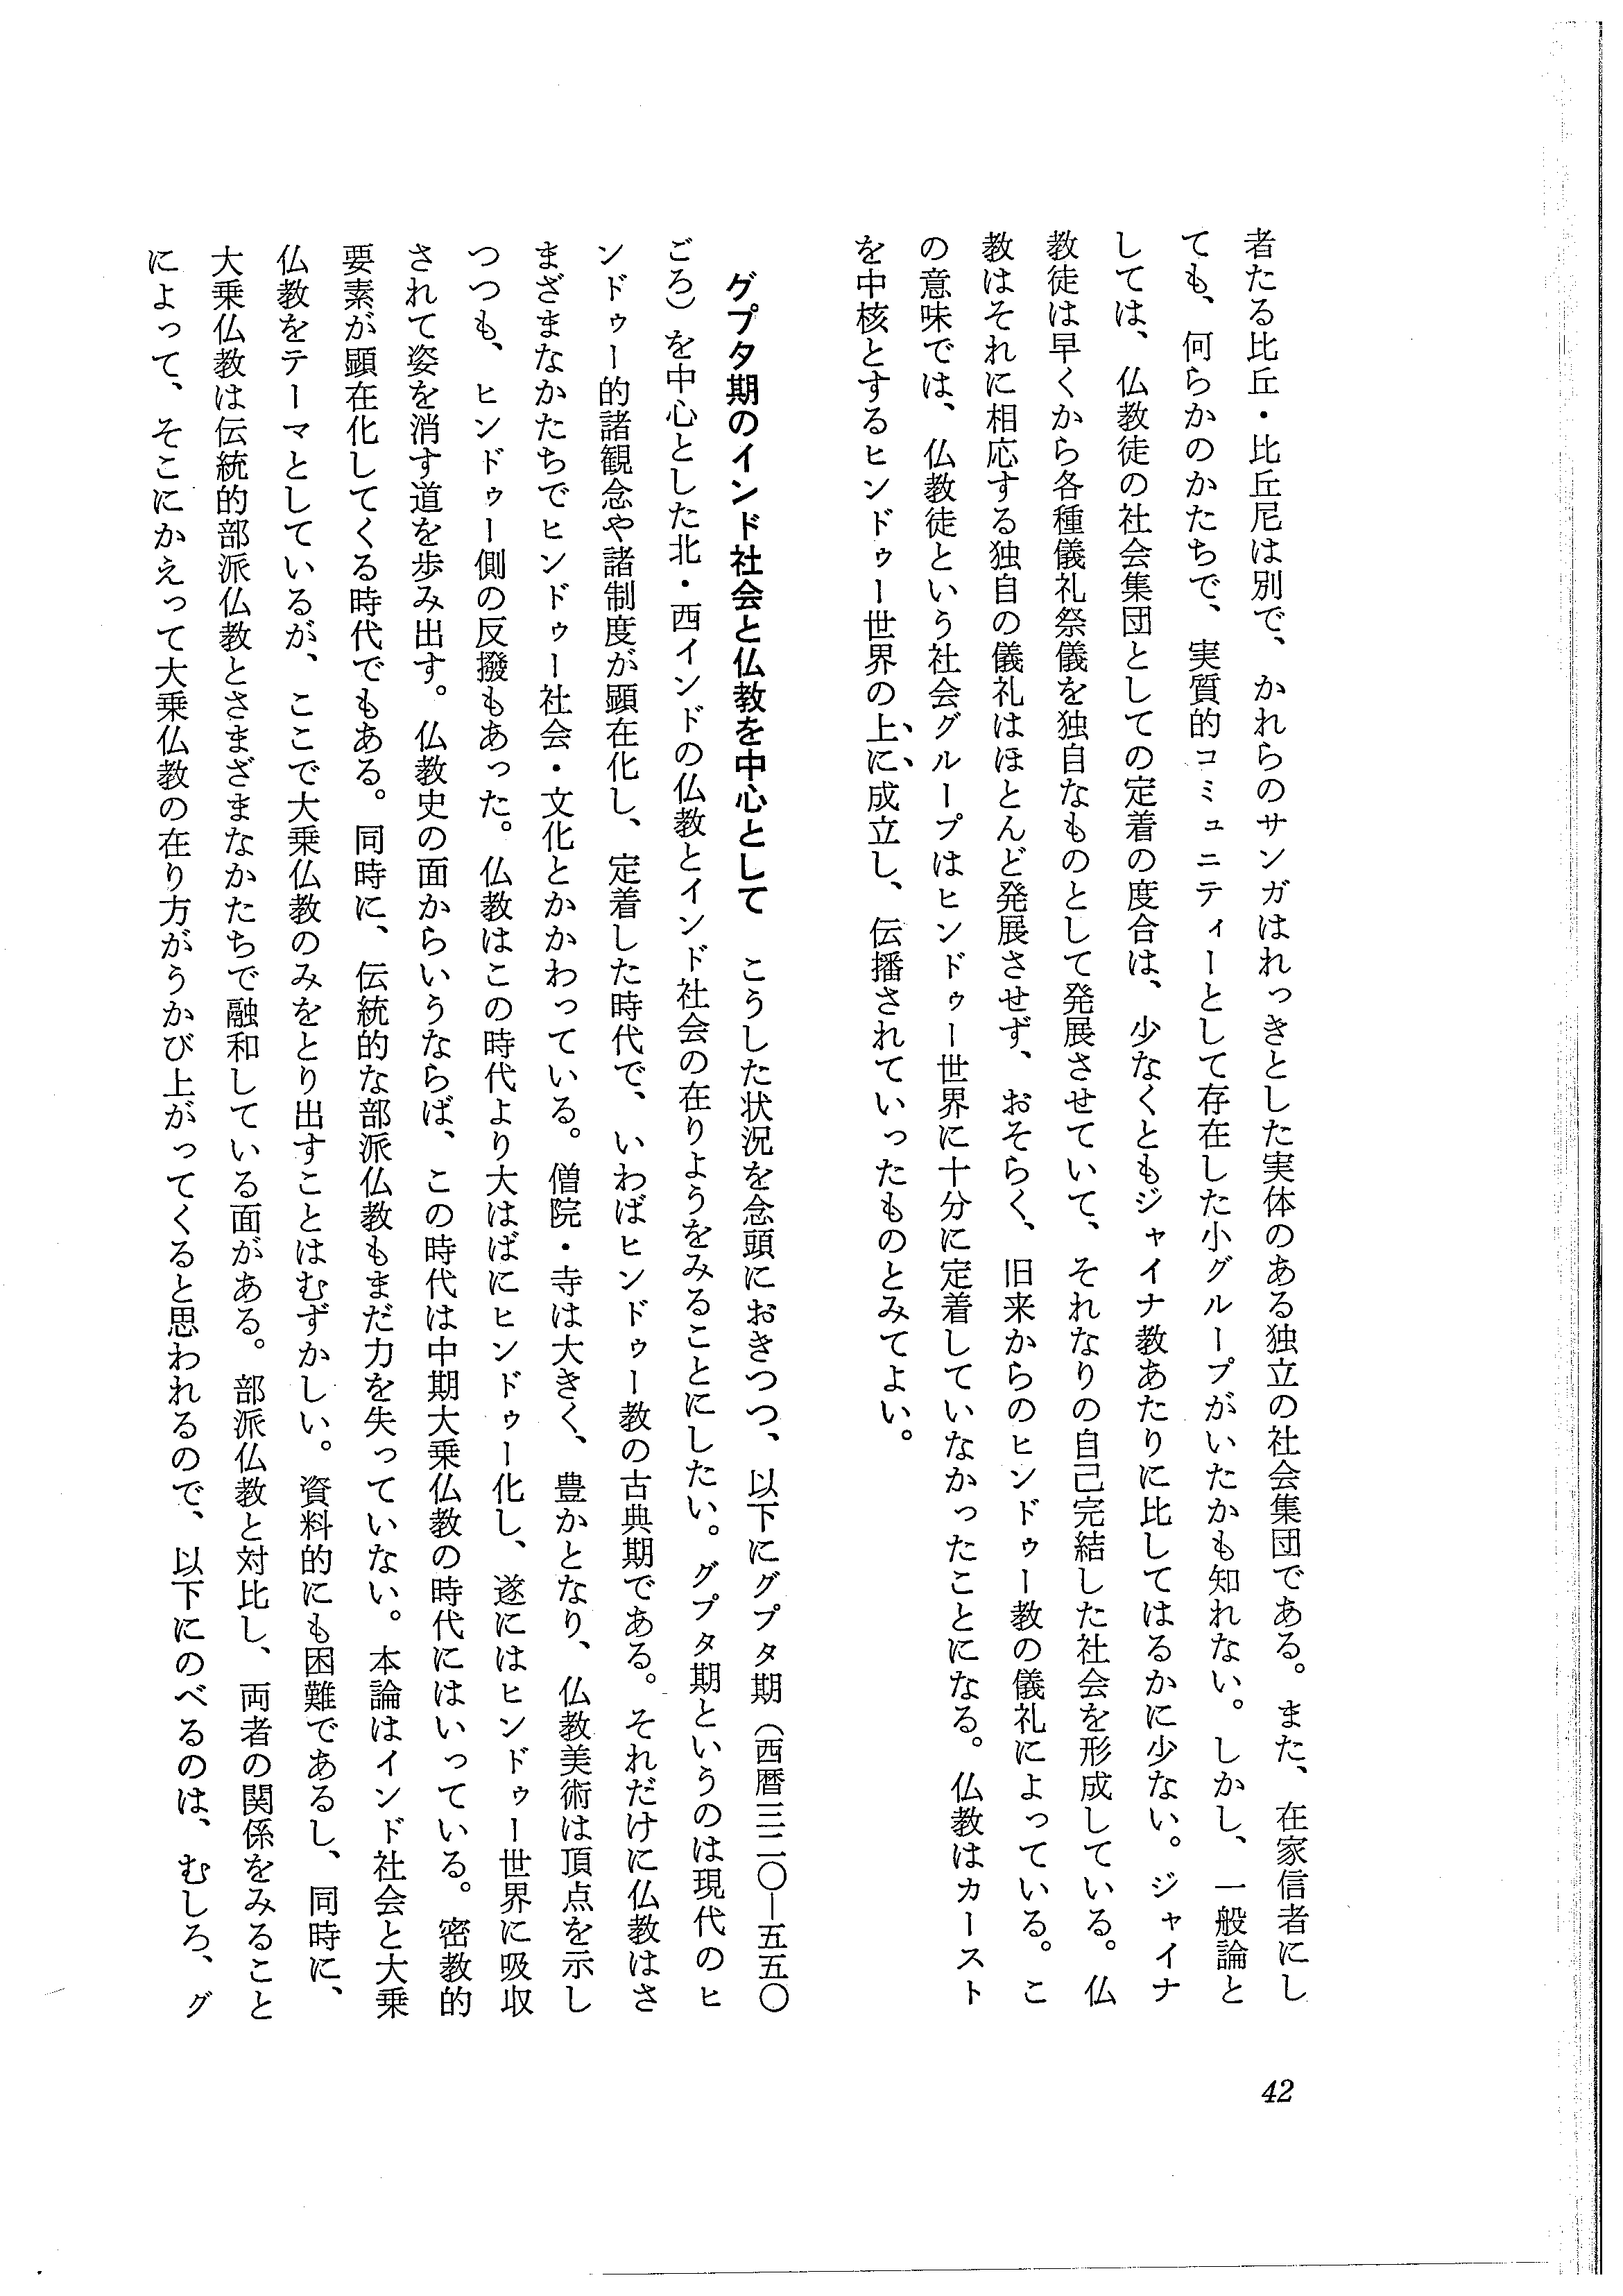 者たる比丘・比丘尼は別で、かれらのサンガはれっきとした実体のある独立の社会集団である。また、在家信者にし
ても、何らかのかたちで、実質的コミュニティーとして存在した小グループがいたかも知れない。しかし、一般論と
しては、仏教徒の社会集団としての定着の度合は、少なくともジャイナ教あたりに比してはるかに少ない。ジャイナ
教徒は早くから各種儀礼祭儀を独自なものとして発展させていて、それなりの自己完結した社会を形成している。仏
教はそれに相応する独自の儀礼はほとんど発展させず、おそらく、旧来からのヒンドゥー教の儀礼によっている。こ
の意味では、仏教徒という社会グループはヒンドゥー世界に十分に定着していなかったことになる。仏教はカースト
を中核とするヒンドゥー世界の上に成立し、伝播されていったものとみてよい。
グプタ期のインド社会と仏教を中心として　こうした状況を念頭におきつつ、以下にグプタ期（西暦三二〇―五五〇
ごろ）を中心とした北・西インドの仏教とインド社会の在りようをみることにしたい。グプタ期というのは現代のヒ
ンドゥー的諸観念や諸制度が顕在化し、定着した時代で、いわばヒンドゥー教の古典期である。それだけに仏教はさ
まざまなかたちでヒンドゥー社会・文化とかかわっている。僧院・寺は大きく、豊かとなり、仏教美術は頂点を示し
つつも、ヒンドゥー側の反撥もあった。仏教はこの時代より大はばにヒンドゥー化し、遂にはヒンドゥー世界に吸収
されて姿を消す道を歩み出す。仏教史の面からいうならば、この時代は中期大乗仏教の時代にはいっている。密教的
要素が顕在化してくる時代でもある。同時に、伝統的な部派仏教もまだ力を失っていない。本論はインド社会と大乗
仏教をテーマとしているが、ここで大乗仏教のみをとり出すことはむずかしい。資料的にも困難であるし、同時に、
大乗仏教は伝統的部派仏教とさまざまなかたちで融和している面がある。部派仏教と対比し、両者の関係をみること
によって、そこにかえって大乗仏教の在り方がうかび上がってくると思われるので、以下にのべるのは、むしろ、グ
42